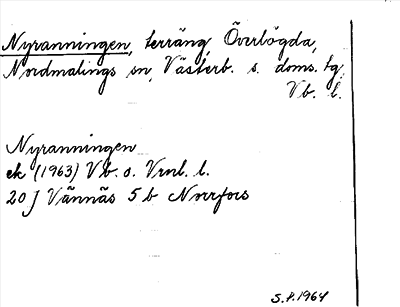 Nyranningen, terräng, Överlögda,
Nordmalings sn, Västerb. s. doms. tg,
Vb. l.
Nyranningen
ek (1963) Vb. o. Vrnl. l.
20 J Vännäs 5 b Norrfors
S.P. 1964